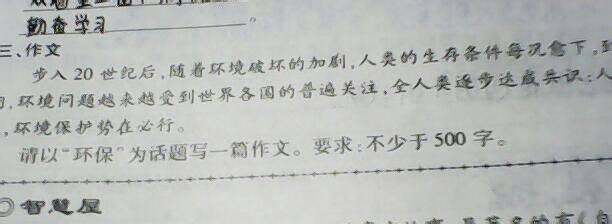 勤奋学习。
三、作文
步入20世纪后,随着环境破坏的加剧,人类的生存条件每况愈下。到
,环境问题越来越受到世界各国的普遍关注,全人类逐步达成共识:人
,环境保护势在必行。
请以“环保”为话题写一篇作文。要求:不少于500字。
◎智慧屋